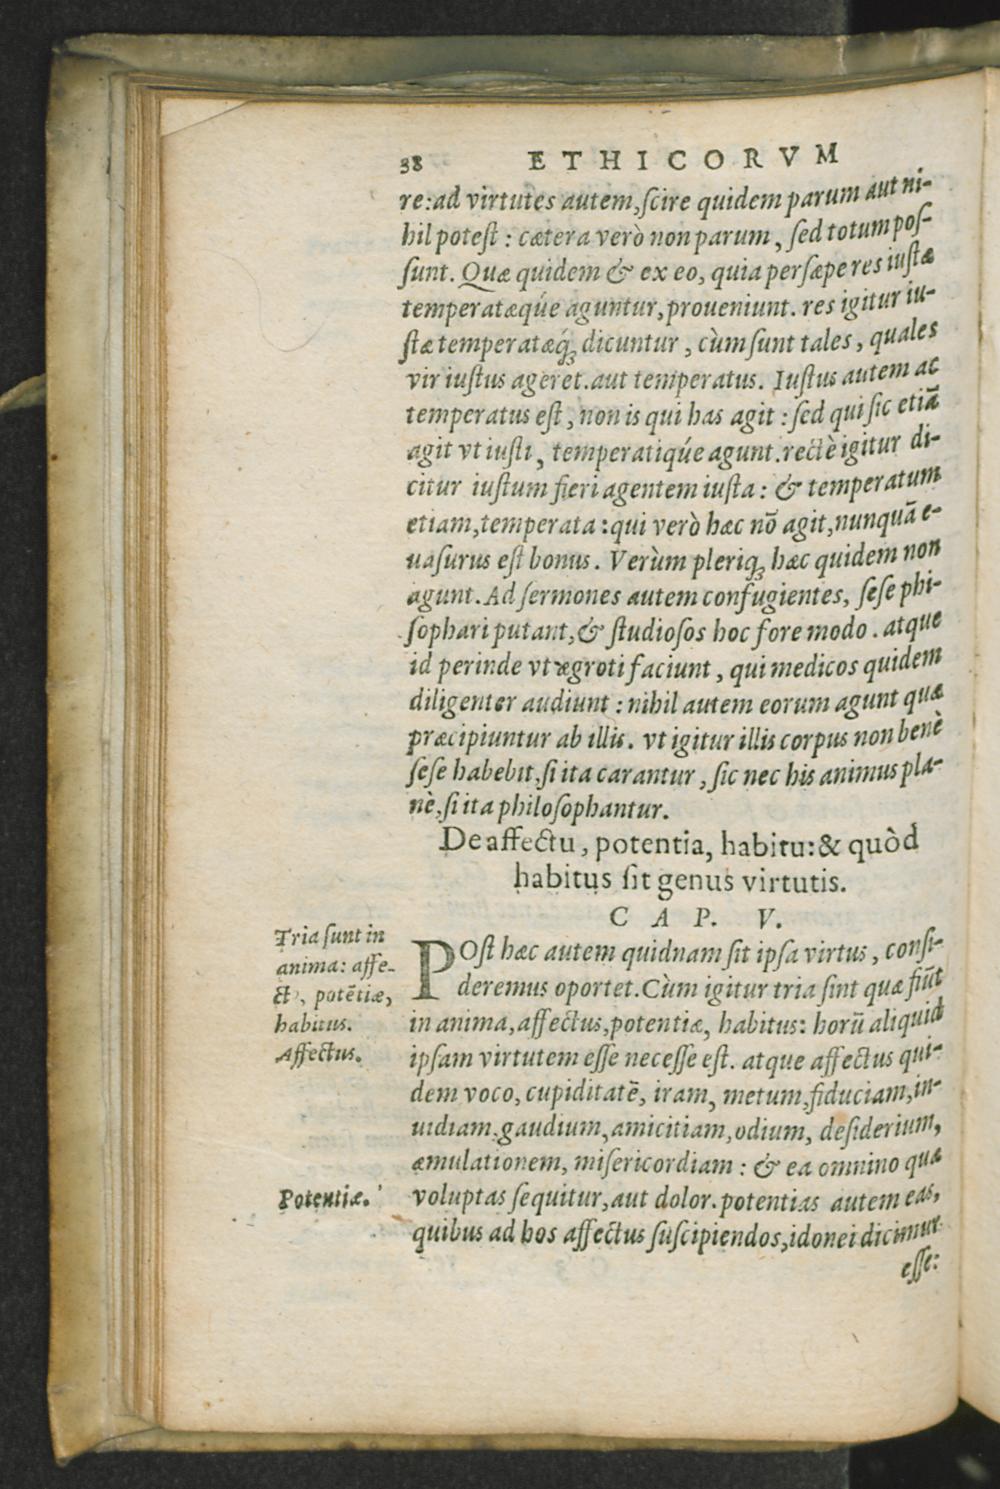 38 ETHICORVM
re:ad virtutes autem,ſcire quidem parum aut ni-
hil poteſt : cætera verò non parum, ſed totum poſ-
ſunt. Quæ quidem & ex eo, quia perſæpe res iuſtæ
temperatæqúe aguntur,proueniunt. res igitur iu-
ſtæ temperatæq́ꝫ dicuntur, cùm ſunt tales, quales
vir iuſtus ageret.aut temperatus. Iuſtus autem ac
temperatus eſt, non is qui has agit : ſed qui ſic etiã
agit vt iuſti, temperatiqúe agunt.rectè igitur di-
citur iuſtum fieri agentem iuſta: & temperatum
etiam,temperata : qui verò hæc nõ agit,nunquã e-
uaſurus eſt bonus. Verùm pleriqꝫ hæc quidem non
agunt. Ad ſermones autem confugientes, ſeſe phi-
ſophari putant,& ſtudioſos hoc fore modo. atque
id perinde vt ægroti faciunt, qui medicos quidem
diligenter audiunt : nihil autem eorum agunt quæ
præcipiuntur ab illis. vt igitur illis corpus non benè
ſeſe habebit,ſi ita carantur, ſic nec his animus pla-
nè,ſi ita philoſophantur.
De affectu, potentia, habitu: & quòd
habitus ſit genus virtutis.
CAP. V.
Tria ſunt in
anima: affe-
ct, potẽtiæ,
habitus.
Affectus.
POſt hæc autem quidnam ſit ipſa virtus, conſi-
deremus oportet. Cùm igitur tria ſint quæ fiũt
in anima, affectus,potentiæ, habitus: horũ aliquid
ipſam virtutem eſſe neceſſe eſt. atque affectus qui-
dem voco, cupiditatẽ, iram, metum,fiduciam,in-
uidiam,gaudium,amicitiam,odium, deſiderium,
æmulationem, miſericordiam : & ea omnino quæ
Potentiæ.
voluptas ſequitur,aut dolor. potentias autem eas,
quibus ad hos affectus ſuſcipiendos,idonei dicimur
eſſe: